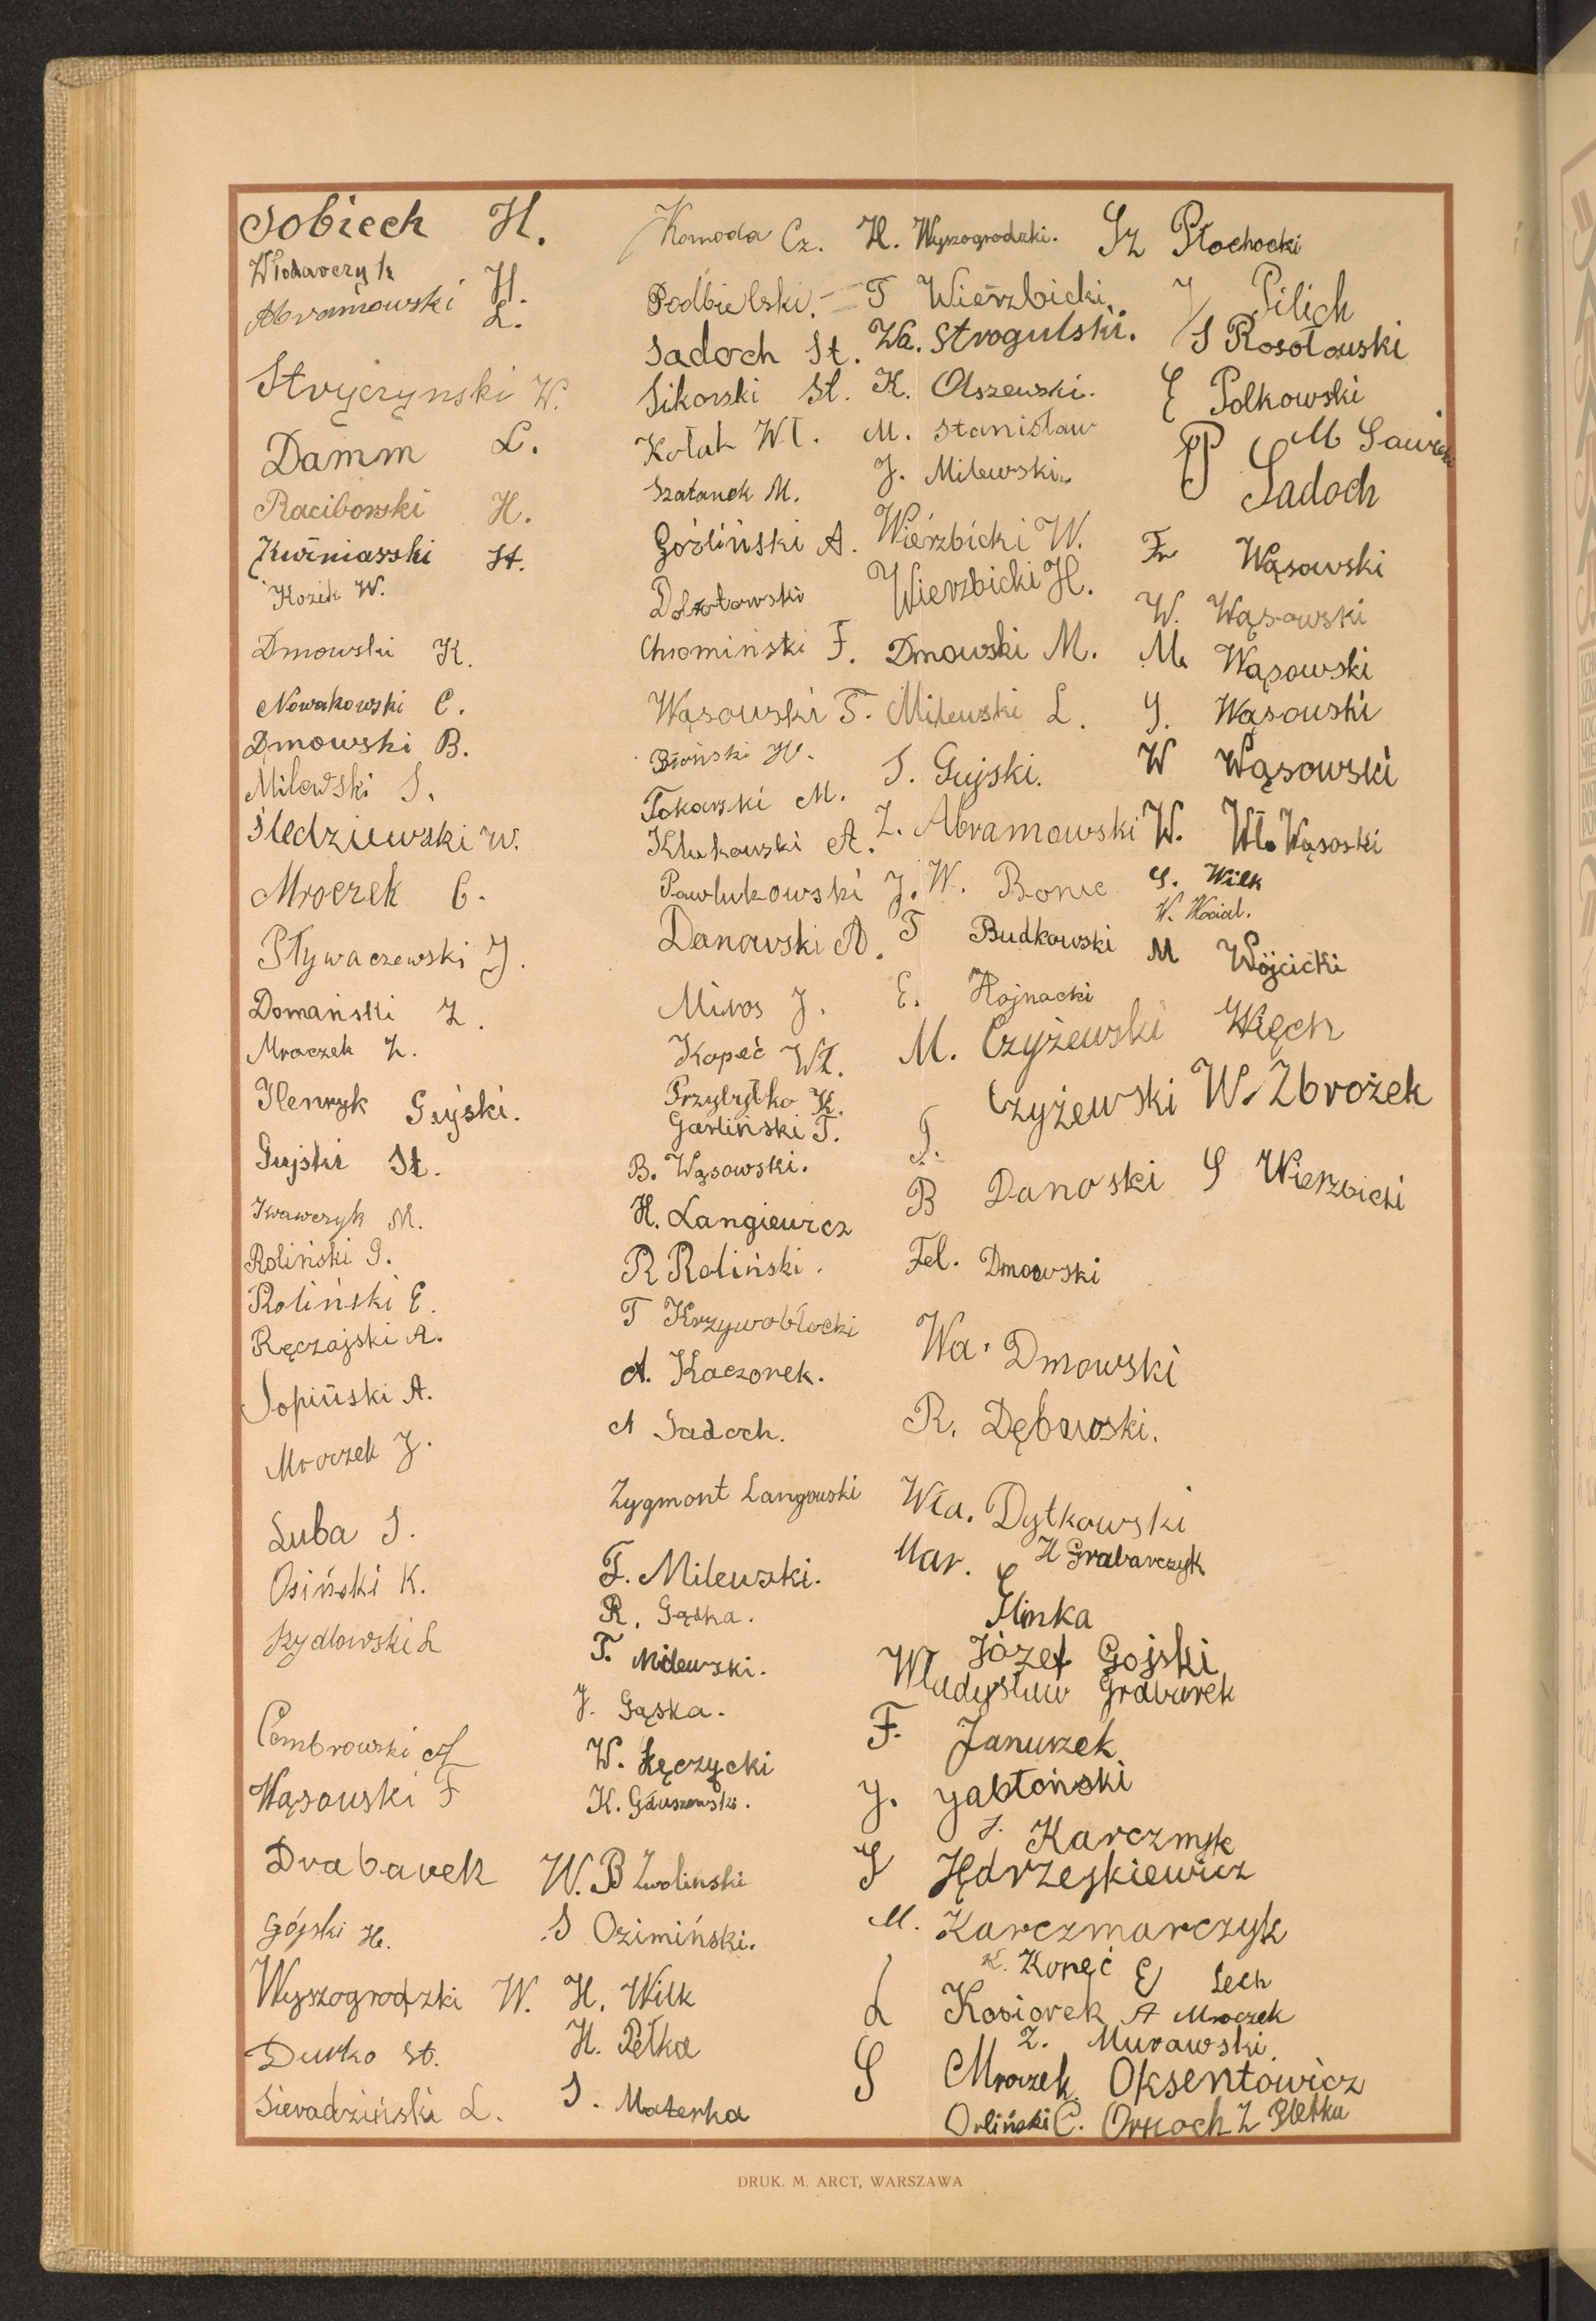 Sobiech H.
Włodarczyk H.
Abramowski L.
Stryczynski W.
Damm L.
Raciborski H.
Kuźniarski St.
Kozik W.
Dmowski K.
Nowakowski C.
Dmowski B.
Milewski S.
Śledziewski W.
Mroczek C.
Pływaczewski J.
Domański Z.
Mroczek Z.
Henryk Gujski.
Gujski St.
Krawczyk M.
Roliński G.
Roliński E.
Ręczajski A.
Sopiński A.
Mroczek J.
Luba S.
Osiński K.
Rydlowski L
Combrowski A
Wąsowski F
Drabarek
Gójski H.
Wyszogrodzki W.
Durko St.
Sieradziński L.
Komoda Cz.
Podbielski.
Sadoch St.
Sikorski St.
Kołak Wł.
Szatanek M.
Goźliński A.
Chromiński F.
Wąsowski F.
Błoński W.
Tokarski M.
Klukowski A.
Pawlukowski J.
Danowski A.
Miros J.
Kopeć Wł.
Przybytko K.
Garliński T.
B. Wąsowski.
H. Langiewicz
R Roliński.
T Krzywobłocki
A. Kaczorek.
A Sadoch.
Zygmont Langowski
F. Milewski.
R. Gąska.
T. Milewski.
J. Gąska.
W. Łęczycki
K. Głuszewski.
W. B Zwolinski
S Ozimiński.
H. Wilk
H. Pełka
S. Materka
H. Wyszogrodzki.
T Wierzbicki.
Wa. Strogulski.
K. Olszewski.
M. Stanisław
J. Milewski.
Wierzbicki W.
Wierzbicki H.
Dmowski M.
Milewski L.
S. Gujski.
Z. Abramowski
W. Bonie
T Budkowski
E. Hojnacki
M. Czyżewski
T. Czyżewski
B Danoski
Fel. Dmowski
Wa. Dmowski
R. Dębowski.
Wła. Dytkowski
Mar. H Grabarczyk
E Glinka
Józef Gojski
Władysław Grabarek
F. Janurzek
J. Jabłoński
J. Karczmyk
J Jędrzejkiewicz
M. Karczmarczyk
K. Kopeć E Lech
L Kosiorek A Mroczek
Z. Murawski.
S Mroczek Oksentowicz
Orliński C. Z Pletka
Sz Płochocki
J Pilich
S Rosołowski
E Polkowski
M Sawicki
P Sadoch
Fr Wąsowski
W. Wąsowski
M. Wąsowski
S. Wąsowski
W Wąsowski
W. Wł. Wąsoski
S. Wilk
W. Wocial.
M Wójcicki
Więch
W. Zbrożek
S Wierzbicki
DRUK. M. ARCT, WARSZAWA